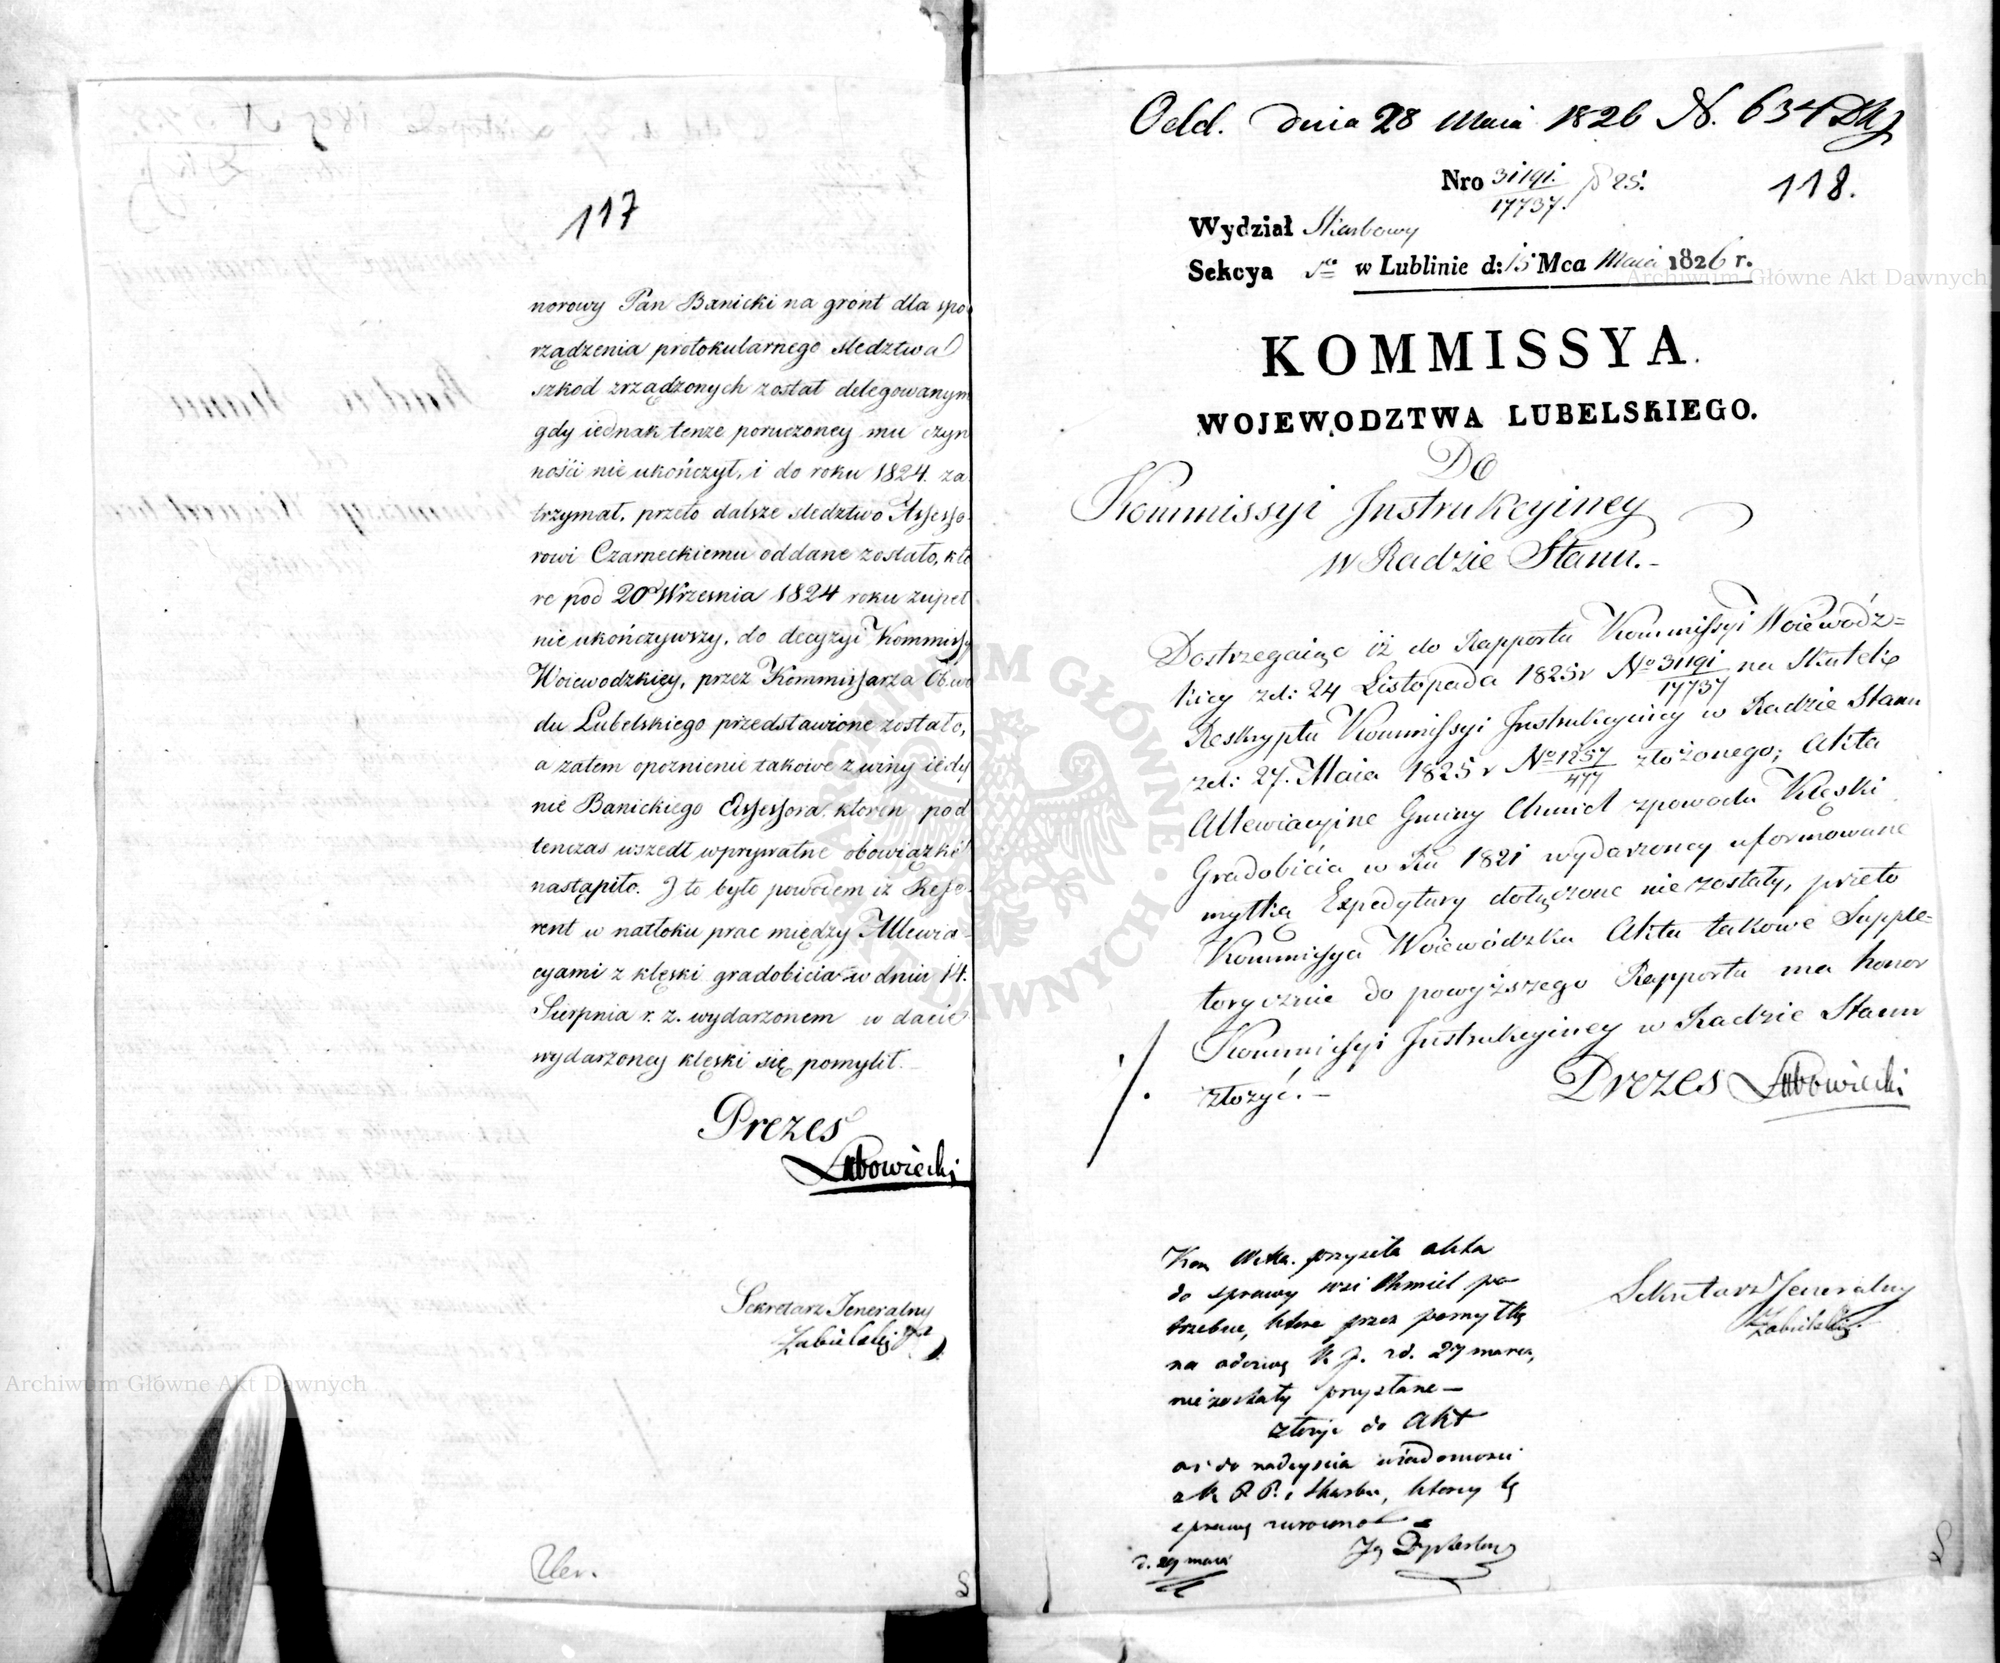 117
norowy Pan Banicki na gront dla spo
rządzenia protokularnego sledztwa
szkod zrządzonych został delegowanym
gdy iednak tenże poruczoney mu czyn
ności nie ukończył, i do roku 1824. za
trzymał, przeto dalsze sledztwo Assesso
rowi Czarneckiemu oddane zostało, któ
re pod 20 Września 1824 roku zupeł
nie ukończywszy, do decyzyi Kommissy
Woiewodzkiey, przez Kommissarza Obwo
du Lubelskiego przedstawione zostało,
a zatem opoznienie takowe z winy iedy
nie Banickiego Assessora, ktoren pod
tenczas wszedł w prywatne obowiązki
nastąpiło. I to było powodem iż Refe
rent w natłoku prac między Allewia
cyami z klęski gradobicia w dniu 14.
Sierpnia r. z. wydarzonem w dacie
wydarzoney klęski się pomylił.
Prezes
Lubowiecki
Sekretarz Jeneralny
Zabielski
Odd. dnia 28 Maia 1826 N. 634
118.
Nro 31191./17737. 25.
Wydział Skarbowy
Sekcya w Lublinie d: 15 Mca Maia 1826 r.
KOMMISSYA
WOJEWODZTWA LUBELSKIEGO.
Do
Kommissyi Instrukcyiney
w Radzie Stanu.-
Dostrzegaiąc iż do Rapportu Kommissyi Woiewódz=
kiey zd: 24 Listopada 1825 r No 31191/17737 na Skutek
Reskryptu Kommissyi Instrukcyiney w Radzie Stanu
zd: 27. Maia 1825 r No 1257/477 złożonego; Akta
Allewiacyine Gminy Chmiel z powodu Klęski
Gradobicia w Ru 1821 wydarzoney uformowane
myłką Expedytury dołączone nie zostały, przeto
Kommissya Woiewódzka Akta takowe Supple-
torycznie do powyższego Rapportu ma honor
Kommissyi Instrukcyiney w Radzie Stanu
złożyć.-
Prezes Lubowiecki
Sekretarz Jeneralny
Zabielski
przysela akta
do sprawy wsi Chmiel po
trzebne, które przez pomyłkę
na odezwę K J. zd. 27 marca,
nie zostały przysłane-
złożyć do Akt
aż do nadeyscia wiadomosci
z K P. i Skarbu, ktorey tę
sprawę
Archiwum Główne Akt Dawnych
Archiwum Główne Akt Dawnych
ARCHIWUM GŁÓWNE AKT DAWNYCH